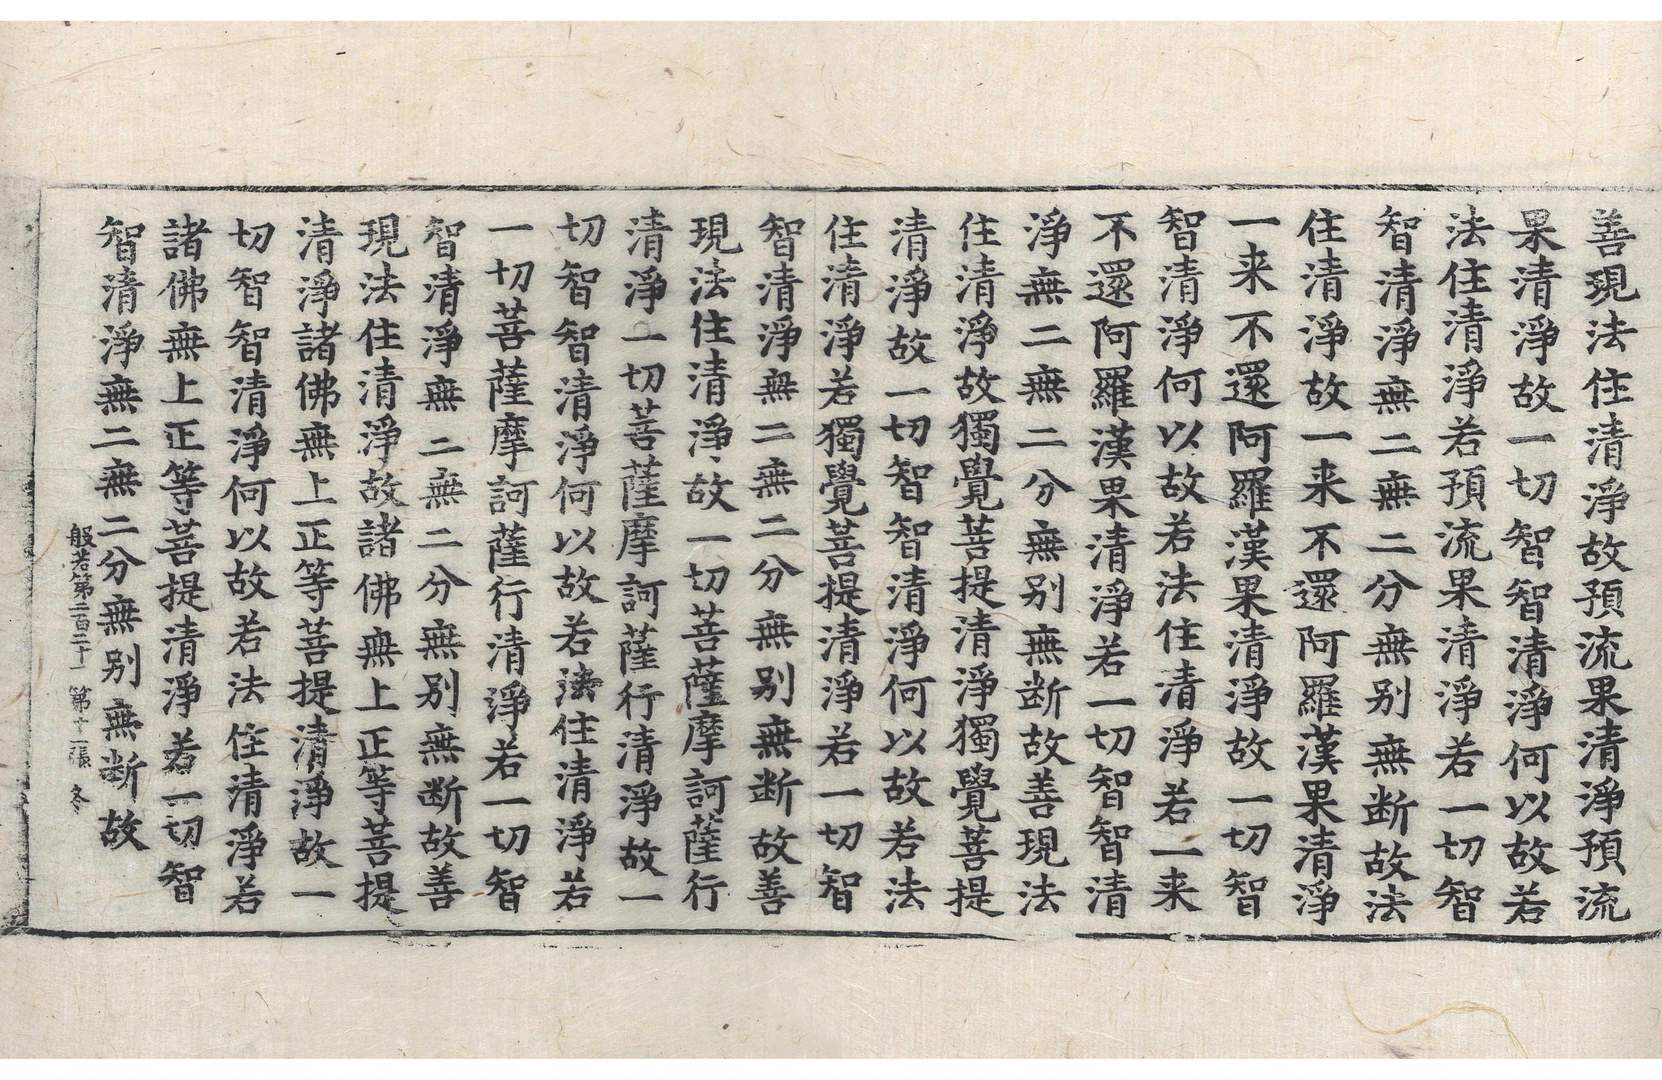 善現法住清淨故預流果清淨預流
果清淨故一切智智清淨何以故若
法住清淨若預流果清淨若一切智
智清淨無二無二分無別無断故法
住清淨故一来不還阿羅漢果清淨
一来不還阿羅漢果清淨故一切智
智清淨何以故若法住清淨若一来
不還阿羅漢果清淨若一切智智清
淨無二無二分無別無断故善現法
住清淨故獨覺菩提清淨獨覺菩提
清淨故一切智智清淨何以故若法
住清淨若獨覺菩提清淨若一切智
智清淨無二無二分無別無断故善
現法住清淨故一切菩薩摩訶薩行
清淨一切菩薩摩訶薩行清淨故一
切智智清淨何以故若法住清淨若
一切菩薩摩訶薩行清淨若一切智
智清淨無二無二分無別無断故善
現法住清淨故諸佛無上正等菩提
清淨諸佛無上正等菩提清淨故一
切智智清淨何以故若法住清淨若
諸佛無上正等菩提清淨若一切智
智清淨無二無二分無別無断故
般若第二百二十一 第十一張 冬